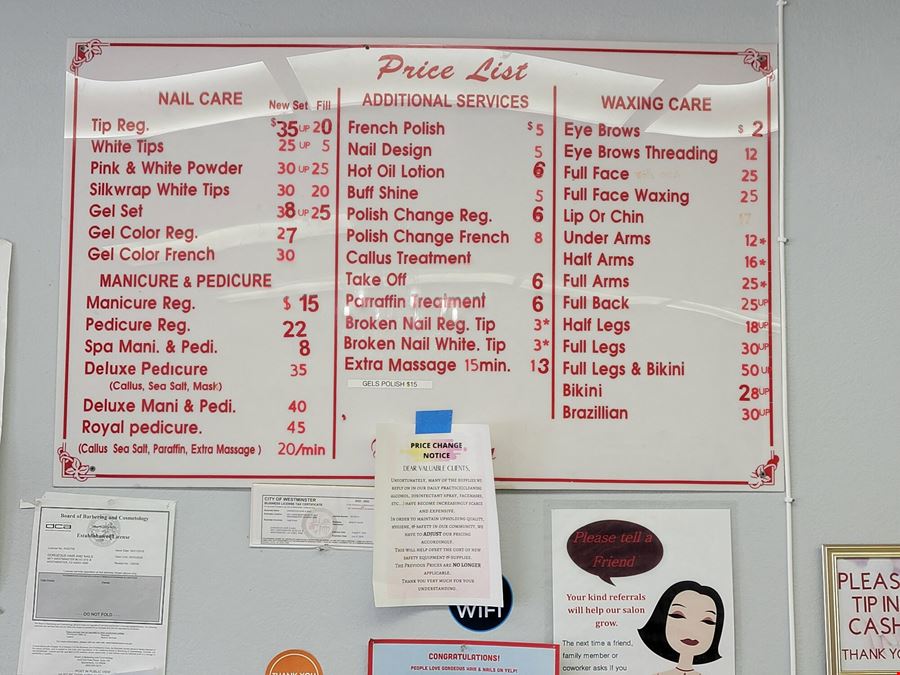 Price List
NAIL CARE New Set Fill
Tip Reg. $35 UP 20
White Tips 25 UP 5
Pink & White Powder 30 UP 25
Silkwrap White Tips 30 20
Gel Set 38 UP 25
Gel Color Reg. 27
Gel Color French 30
MANICURE & PEDICURE
Manicure Reg. $ 15
Pedicure Reg. 22
Spa Mani. & Pedi. 8
Deluxe Pedicure 35
(Callus, Sea Salt, Mask)
Deluxe Mani & Pedi. 40
Royal pedicure. 45
(Callus Sea Salt, Paraffin, Extra Massage ) 20/min
ADDITIONAL SERVICES
French Polish $5
Nail Design 5
Hot Oil Lotion 6
Buff Shine 5
Polish Change Reg. 6
Polish Change French 8
Callus Treatment
Take Off 6
Parraffin Treatment 6
Broken Nail Reg. Tip 3*
Broken Nail White. Tip 3*
Extra Massage 15min. 13
GELS POLISH $15
WAXING CARE
Eye Brows $ 2
Eye Brows Threading 12
Full Face 25
Full Face Waxing 25
Lip Or Chin 17
Under Arms 12*
Half Arms 16*
Full Arms 25*
Full Back 25UP
Half Legs 18UP
Full Legs 30UP
Full Legs & Bikini 50U
Bikini 28UP
Brazillian 30UP
PRICE CHANGE
NOTICE
DEAR VALUABLE CLIENTS,
UNFORTUNATELY, MANY OF THE SUPPLIES WE
REPLY ON IN OUR DAILY PRACTICE(CLEANING
ALCOHOL, DISINFECTANT SPRAY, FACEMASKS,
ETC...) HAVE BECOME INCREASINGLY SCARCE
AND EXPENSIVE.
IN ORDER TO MAINTAIN UPHOLDING QUALITY,
HYGIENE, & SAFETY IN OUR COMMUNITY, WE
HAVE TO ADJUST OUR PRICING
ACCORDINGLY.
THIS WILL HELP OFFSET THE COST OF NEW
SAFETY EQUIPMENT & SUPPLIES.
THE PREVIOUS PRICES ARE NO LONGER
APPLICABLE.
THANK YOU VERY MUCH FOR YOUR
UNDERSTANDING.
Board of Barbering and Cosmetology
dca
Establishment License
GORGEOUS HAIR AND NAILS
DO NOT FOLD
POST IN PUBLIC VIEW
CITY OF WESTMINSTER
BUSINESS LICENSE TAX CERTIFICATE
WIFI
THANK YOU
CONGRATULATIONS!
PEOPLE LOVE GORGEOUS HAIR & NAILS ON YELP!
Please tell a
Friend
Your kind referrals
will help our salon
grow.
The next time a friend,
family member or
coworker asks if you
PLEAS
TIP IN
CASH
THANK YO